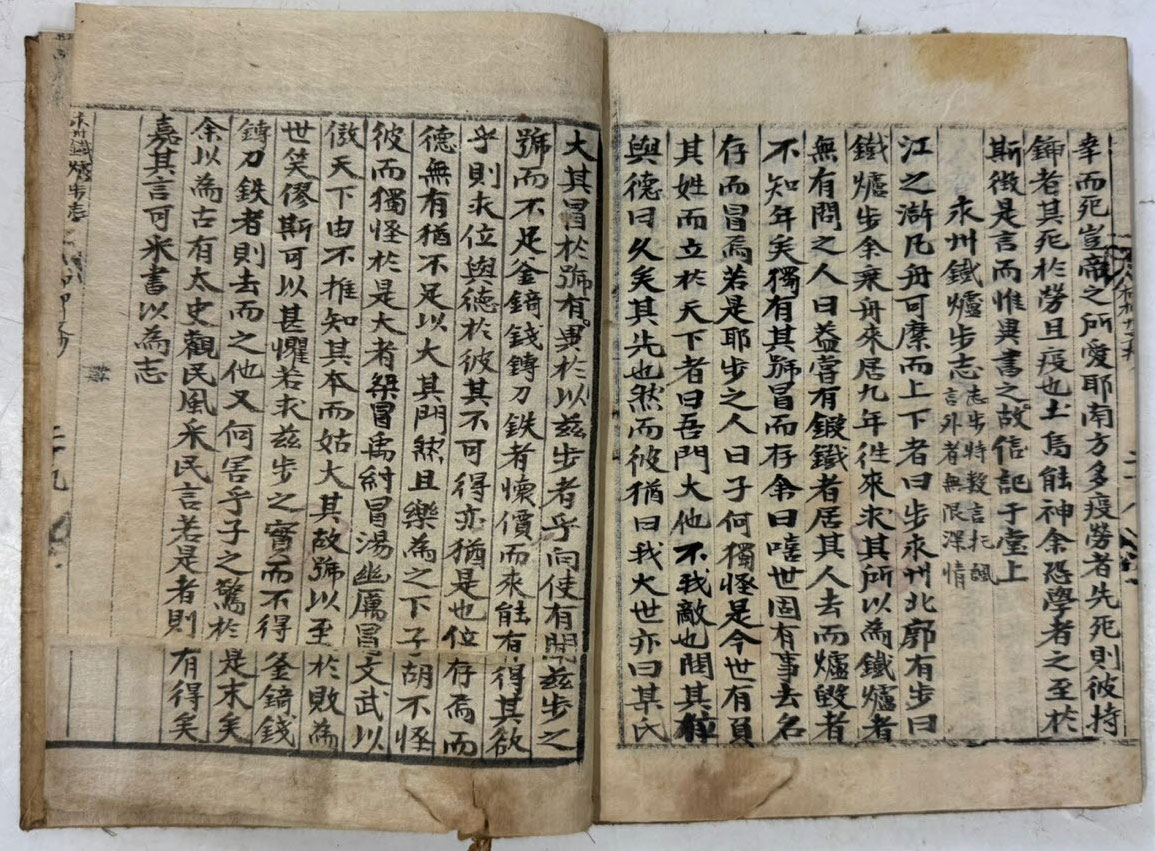 幸而死豈帝之所愛耶南方多疫勞者先死則彼持
鍤者其死於勞且疫也土烏能神余恐學者之至於
斯徵是言而惟異書之故信記于堂上
永州鐵爐步志
志步特數言托諷
言外者無限深情
江之滸凡舟可縻而上下者曰步永州北郭有步曰
鐵爐步余乘舟來居九年徃來求其所以為鐵爐者
無有問之人曰益嘗有鍛鐵者居其人去而爐毀者
不知年矣獨有其號冒而存余曰嘻世固有事去名
存而冒焉若是耶步之人曰子何獨怪是今世有負
其姓而立於天下者曰吾門大他不我敵也問其位
與德曰久矣其先也然而彼猶曰我大世亦曰某氏
大其冒於號有異於以茲步者乎向使有聞茲步之
號而不足釜錡錢鎛刀鉄者懷價而來能有得其欲
乎則求位與德於彼其不可得亦猶是也位存焉而
德無有猶不足以大其門然且樂為之下子胡不怪
彼而獨怪於是大者桀冒禹紂冒湯幽厲冒文武以
傲天下由不推知其本而姑大其故號以至於敗為
世笑僇斯可以甚懼若求茲步之實而不得釜錡錢
鎛刀鉄者則去而之他又何害乎子之驚於是末矣
余以為古有太史觀民風采民言若是者則有得矣
嘉其言可采書以為志
永州鐵爐步志
二十九